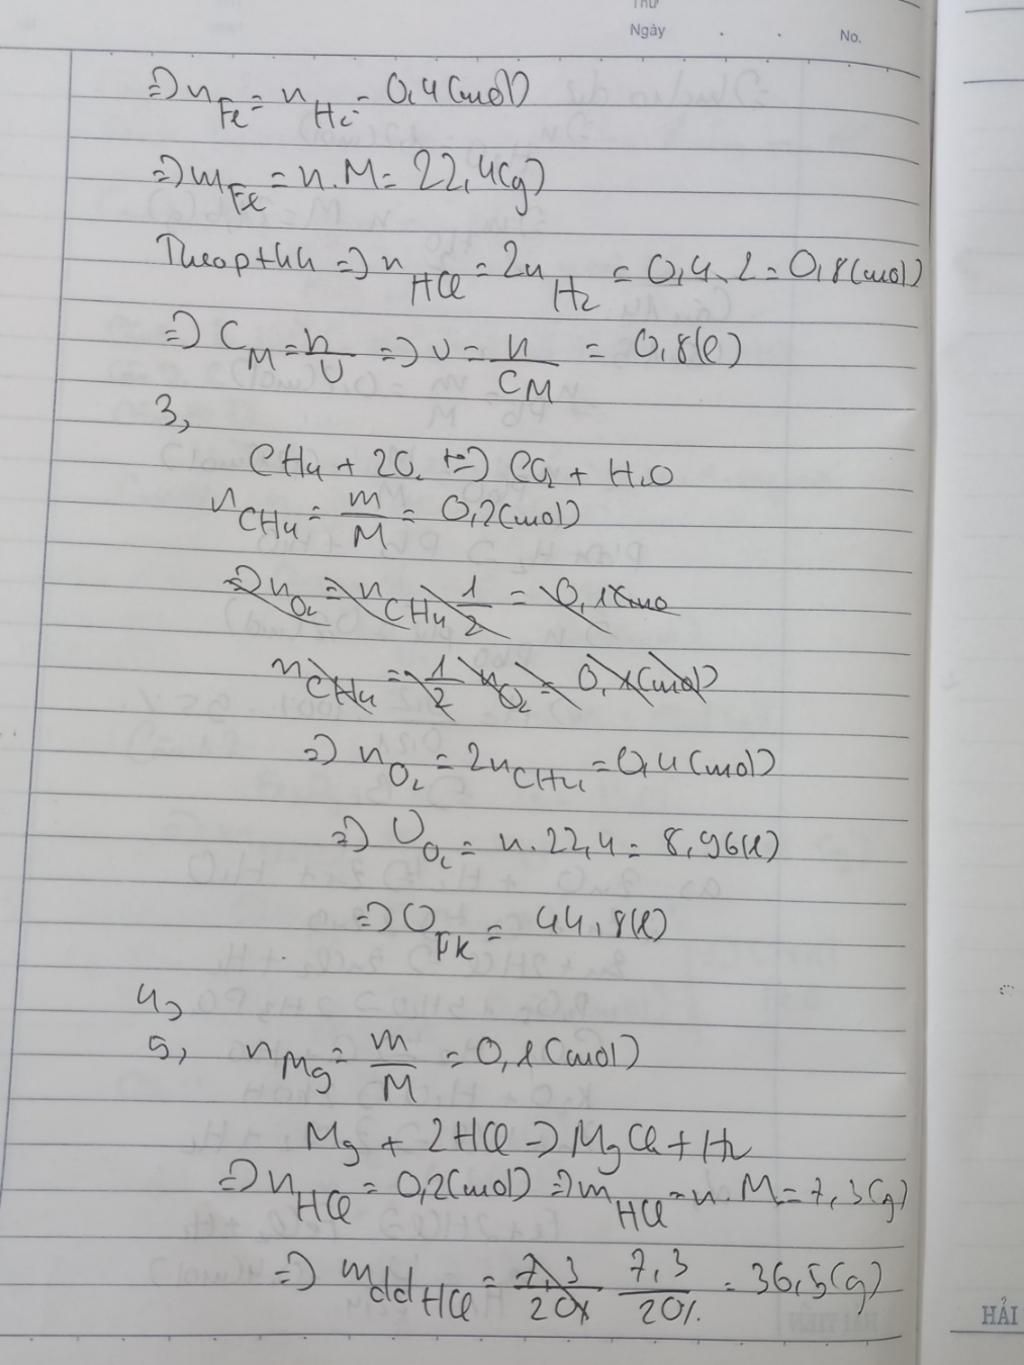 Thứ
Ngày . . No.
=> n Fe = n H2 = 0,4 (mol)
=> m Fe = n.M = 22,4 (g)
Theo ptHh => n HCl = 2n H2 = 0,4.2 = 0,8 (mol)
=> CM = n/V => V = n/CM = 0,8 (l)
3,
CH4 + 2O2 t°=> CO2 + H2O
n CH4 = m/M = 0,2 (mol)
=> n O2 = n CH4 1/2 = 0,1 (mo
n CH4 = 1/2 n O2 = 0,1 (mol)
=> n O2 = 2n CH4 = 0,4 (mol)
=> V O2 = n.22,4 = 8,96 (l)
=> V kk = 44,8 (l)
4,
5, n Mg = m/M = 0,1 (mol)
Mg + 2HCl => MgCl2 + H2
=> n HCl = 0,2 (mol) => m HCl = n.M = 7,3 (g)
=> mdd HCl = 7,3/20% 7,3/20% = 36,5 (g)
HẢI